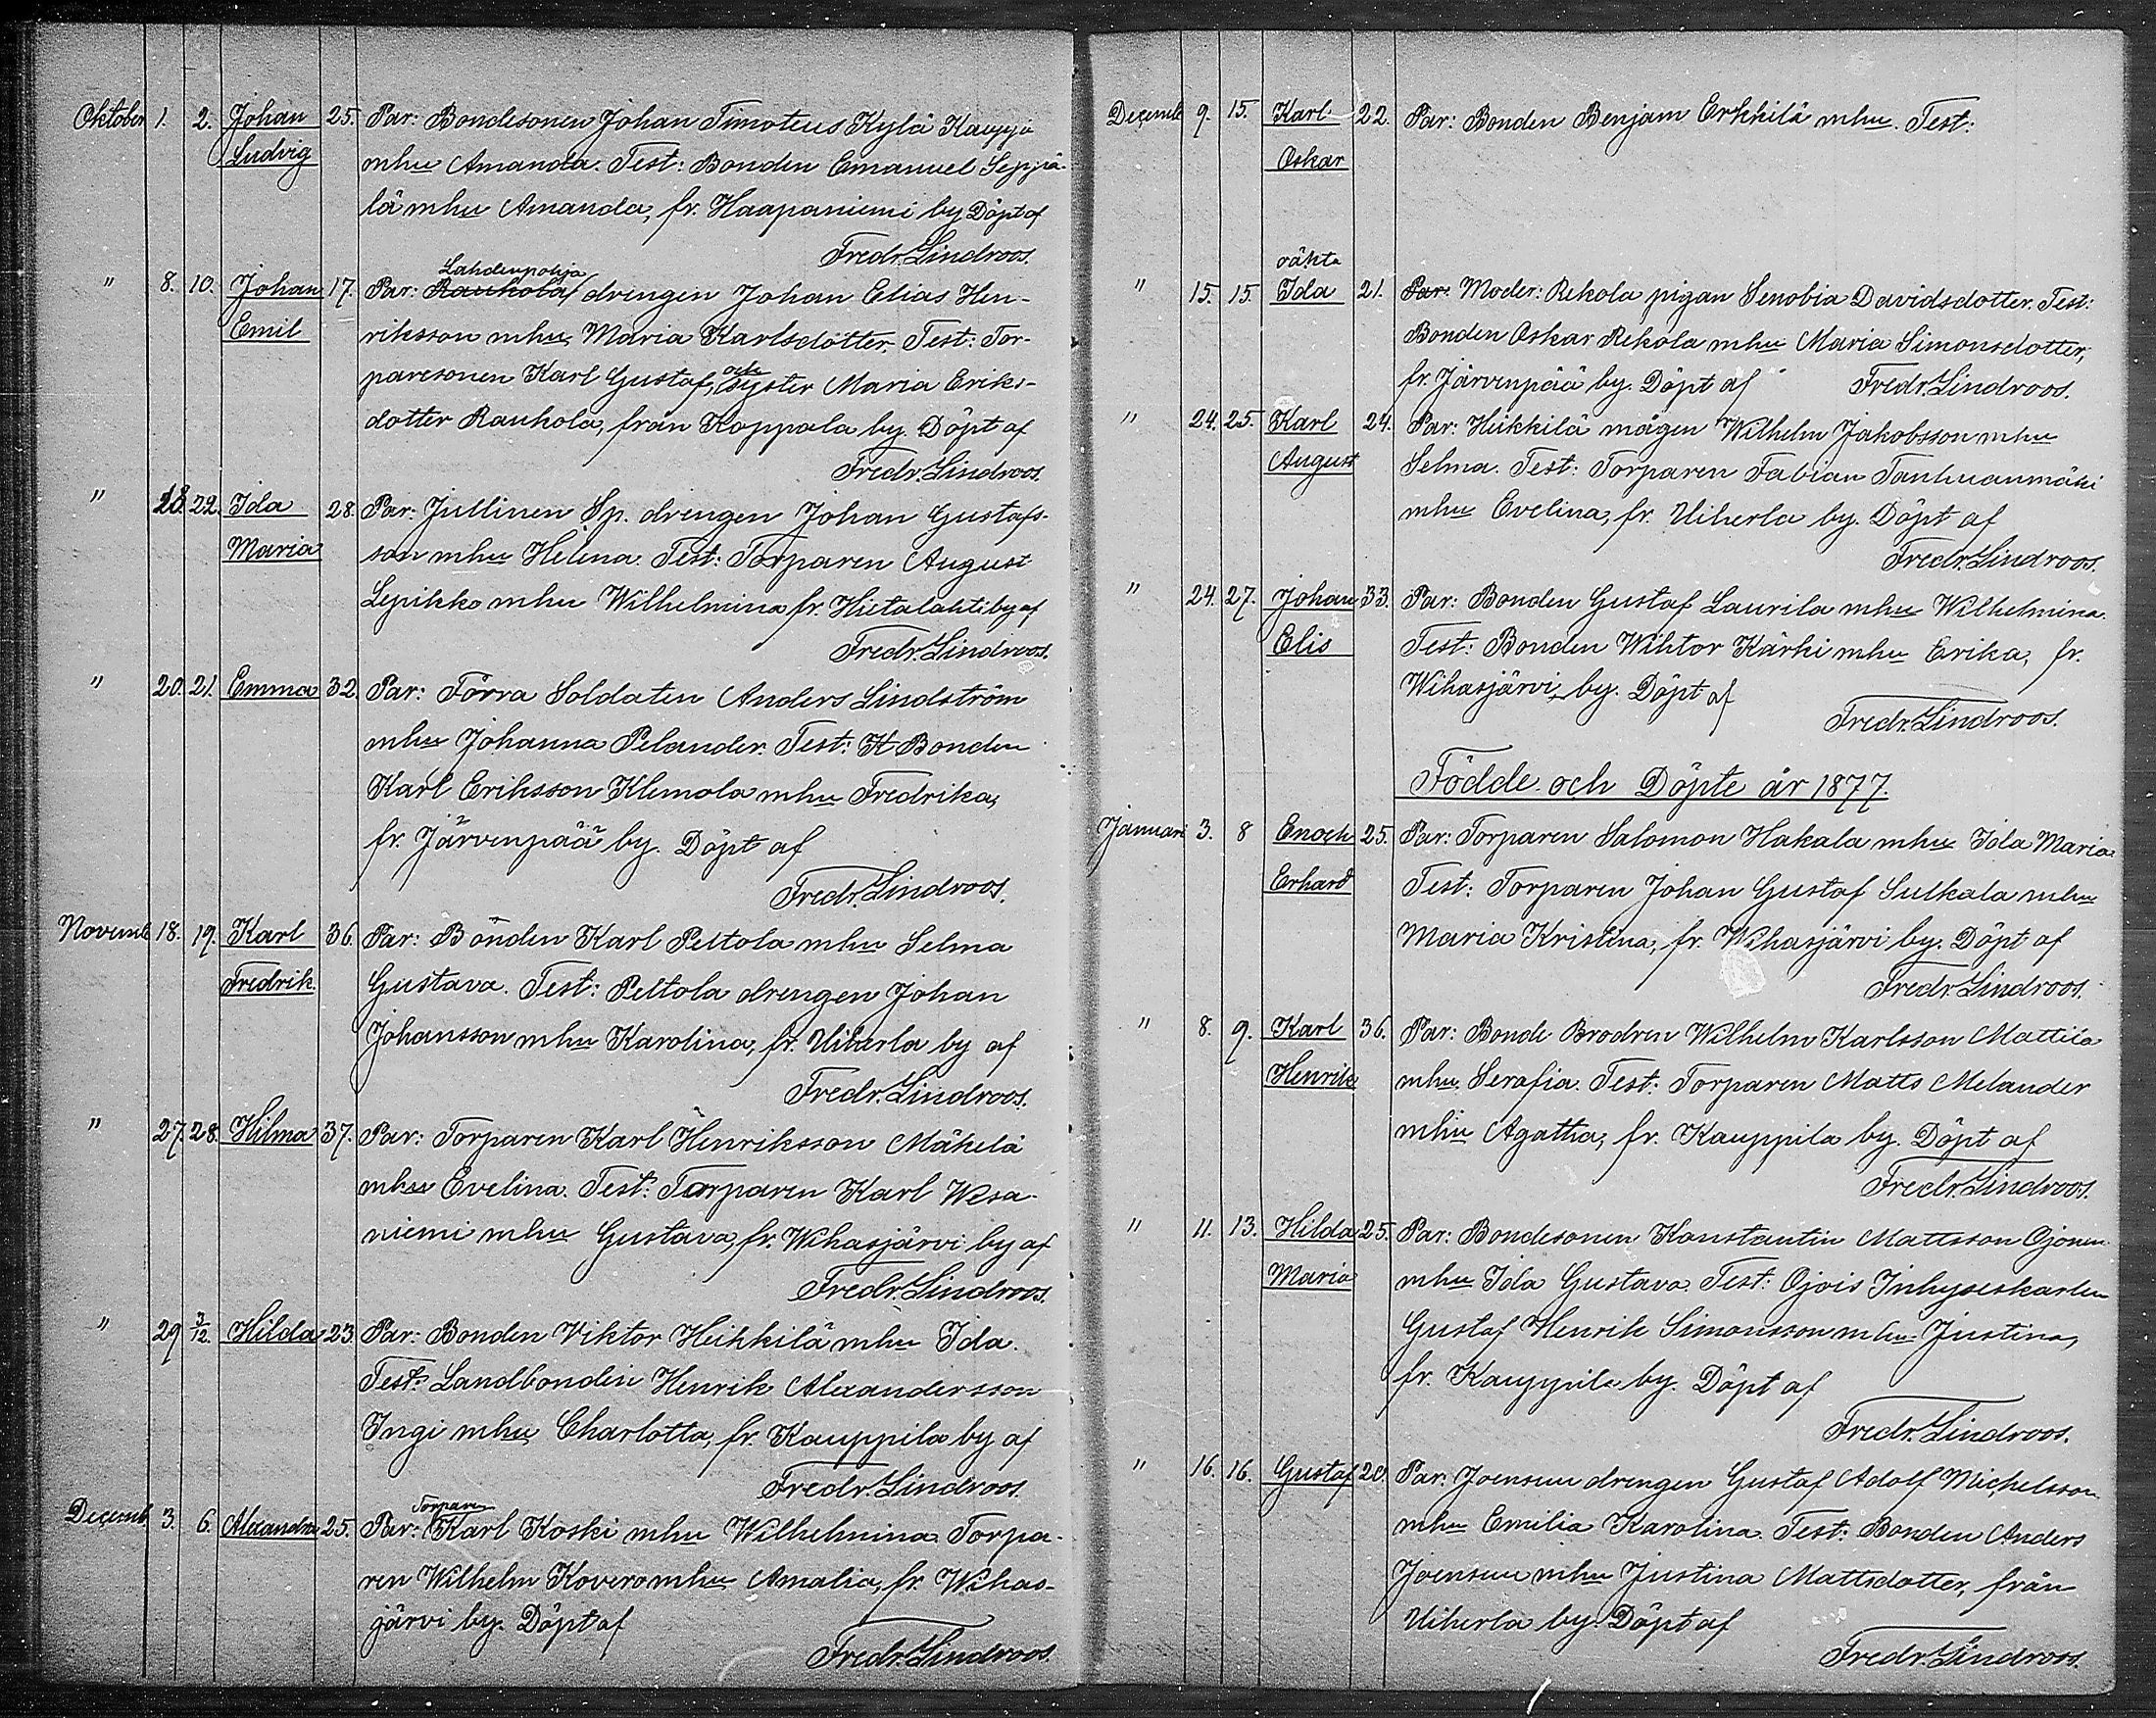 Oktober 1. 2. Johan 25. Par: Bondesonen Johan Timoteus Kylä Kauppi
Ludvig mhu Amanda. Test: Bonden Emanuel Seppä-
lä mhu Amanda, fr. Haapaniemi by Döpt af
Fredr. Lindroos.
Lahdenpohja
" 8. 10. Johan 17. Par: Rauhola drengen Johan Elias Hen-
Emil riksson mhu Maria Karlsdotter. Test: Tor-
paresonen Karl Gustaf, och syster Maria Eriks-
dotter Rauhola, från Koppala by. Döpt af
Fredr. Lindroos.
" 18. 22. Ida 28. Par: Jullinen Sp. drengen Johan Gustafs-
Maria son mhu Helena. Test: Torparen August
Lepikko mhu Wilhelmina fr. Hietalahti by af
Fredr. Lindroos.
" 20. 21. Emma 32. Par: Förra Soldaten Anders Lindström
mhu Johanna Pelander. Test: K Bonden
Karl Eriksson Klemola mhu Fredrika,
fr. Järvenpää by. Döpt af
Fredr. Lindroos.
Novemb 18. 19. Karl 36. Par: Bonden Karl Peltola mhu Selma
Fredrik. Gustava. Test: Peltola drengen Johan
Johansson mhu Karolina, fr. Uiherla by af
Fredr. Lindroos.
" 27. 28. Hilma 37. Par: Torparen Karl Henriksson Mäkelä
mhu Evelina. Test: Torparen Karl Wesa-
niemi mhu Gustava, fr. Wihasjärvi by af
Fredr. Lindroos.
" 29 3/12. Hilda 23. Par: Bonden Viktor Heikkilä mhu Ida.
Test: Landbonden Henrik Alexandersson
Ingi mhu Charlotta, fr. Kauppila by af
Fredr. Lindroos.
Torparen
Decemb. 3. 6. Alexandra 25. Par: Karl Koski mhu Wilhelmina Torpa-
ren Wilhelm Kovero mhu Amalia, fr. Wihas-
järvi by. Döpt af
Fredr. Lindroos.
Decemb 9. 15. Karl 22. Par: Bonden Benjam Erkkilä mhu. Test:
Oskar
oäkta
" 15. 15. Ida 21. Par: Moder: Rekola pigan Senobia Davidsdotter. Test:
Bonden Oskar Rekola mhu Maria Simonsdotter,
fr. Järvenpää by. Döpt af Fredr. Lindroos.
" 24. 25. Karl 24. Par: Heikkilä mågen Wilhelm Jakobsson mhu
August Selma. Test: Torparen Fabian Tanhuanmäki
mhu Evelina, fr. Uiherla by. Döpt af
Fredr. Lindroos.
" 24. 27. Johan 33. Par: Bonden Gustaf Laurila mhu Wilhelmina.
Elis Test: Bonden Wiktor Kärki mhu Erika, fr.
Wihasjärvi by. Döpt af
Fredr. Lindroos.
Födde och Döpte år 1877.
Januari 3. 8 Enoch 25. Par: Torparen Salomon Hakala mhu Ida Maria
Erhard Test: Torparen Johan Gustaf Sulkala mhu
Maria Kristina, fr. Wihasjärvi by. Döpt af
Fredr. Lindroos.
" 8. 9. Karl 36. Par: Bonde Brodren Wilhelm Karlsson Mattila
Henrik mhu Serafia. Test: Torparen Matts Melander
mhu Agatha, fr. Kauppila by. Döpt af
Fredr. Lindroos.
" 11. 13. Hilda 25. Par: Bondesonen Konstantin Mattsson Ojonen
Maria mhu Ida Gustava. Test: Ojois Inhyseskarlen
Gustaf Henrik Simonsson mhu Justina,
fr. Kauppila by. Döpt af
Fredr. Lindroos.
" 16. 16. Gustaf 20. Par: Joensuu drengen Gustaf Adolf Michelsson
mhu Emilia Karolina. Test: Bonden Anders
Joensuu mhu Justina Mattsdotter, från
Uiherla by. Döpt af
Fredr. Lindroos.